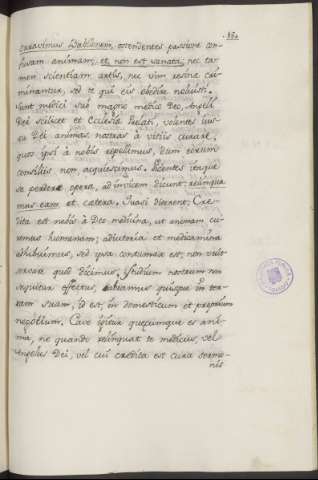 86.
curavimus Babilonem, ostendentes passivre con-
fusam animam, et non est sanata; nec ta-
men scientiam artis, nec vim resinæ cri-
minantur, sed te qui eis obedire noluisti.
Sunt medici sub magno medico Deo, Angeli
Dei scilicet et Ecclesiæ Prelati, volentes jus-
su Dei animas nostras à vitiis curare,
quos ipsi à nobis repellimus, dum eorum
consiliis non acquiescimus. Dicentes itaque
se perdere opera, ad invicem dicunt relinqua
mus eam et cætera. Quasi dicerent; Cre-
dita est nobis à Deo medicina, ut animam cu-
remus humanam; adiutoria et medicamina
adhibuimus, sed ipsa contumax est, non vult
servare quod dicimus. Studium nostrum non
sequitur effectus, abeamus quisque in ter-
ram suam, id est, in domesticum et proprium
negotium. Cave igitur quæcumque es ani-
ma, ne quando relinquat te medicus, vel
Angelus Dei, vel cui credita est cura sermo-
nis